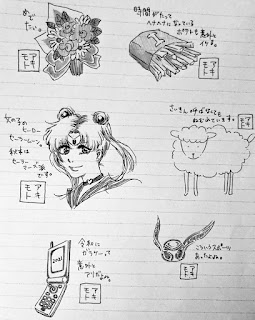 めで
たい。
アキ
モト
時間がたって
ヘナヘナになっている
ポテトも意外と
イケる。
アキ
モト
女の子の
ヒーロー
セーラームーン。
秋本は
セーラー
マーズ派
です。
アキ
モト
さいきん呼ばなくても
ねむれています。
アキ
モト
令和に
ガラケーって
意外と
アリだよね。
2021
アキ
モト
こういうスポーツ
あったよね。
アキ
モト